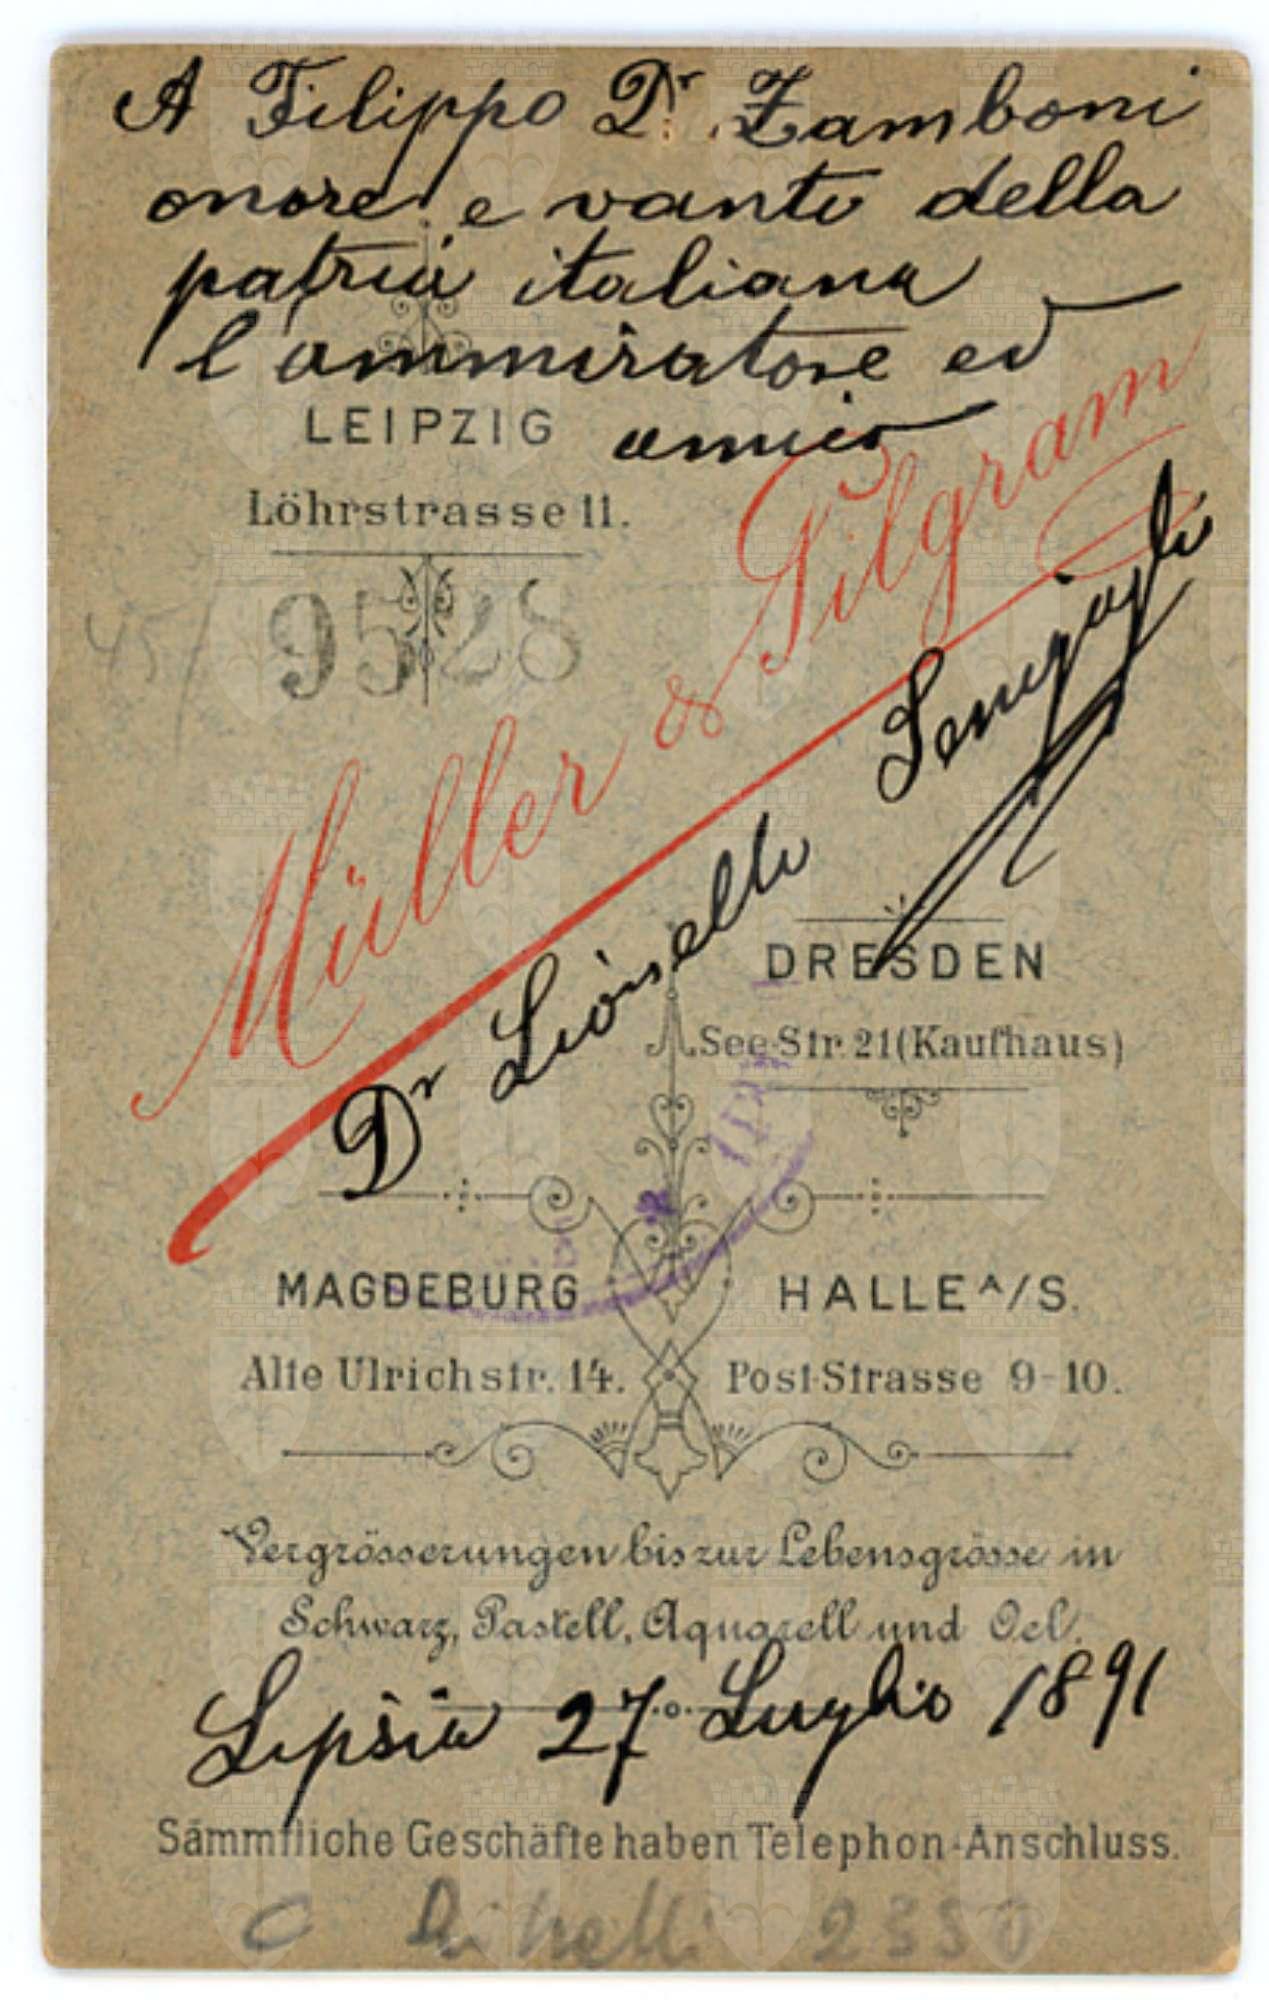 A Filippo Dr Zamboni
onore e vanto della
patria italiana
l'ammiratore ed
amico
LEIPZIG
Löhrstrasse 11.
45/
9528
Müller & Pilgram
Dr Lionello Senigaglia
DRESDEN
See-Str. 21 (Kaufhaus)
MAGDEBURG
Alte Ulrichstr. 14.
HALLE A/S.
Post-Strasse 9-10.
Vergrösserungen bis zur Lebensgrösse in
Schwarz, Pastell, Aquarell und Oel.
Lipsia 27 Luglio 1891
Sämmtliche Geschäfte haben Telephon-Anschluss.
2350